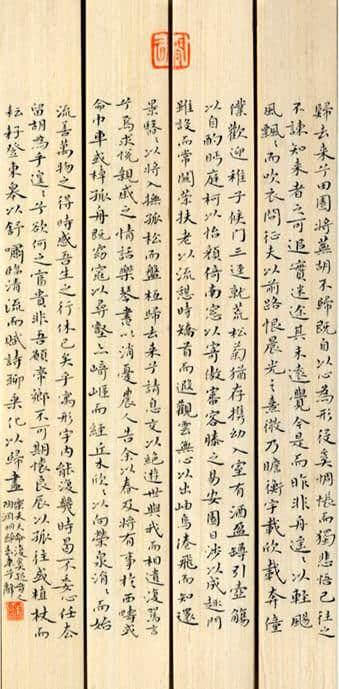 歸去來兮田園將蕪胡不歸既自以心為形役奚惆悵而獨悲悟已往之
不諫知來者之可追實迷途其未遠覺今是而昨非舟遙遙以輕颺
風飄飄而吹衣問征夫以前路恨晨光之熹微乃瞻衡宇載欣載奔僮
僕歡迎稚子候門三逕就荒松菊猶存攜幼入室有酒盈罇引壺觴
以自酌眄庭柯以怡顏倚南窗以寄傲審容膝之易安園日涉以成趣門
雖設而常關策扶老以流憩時矯首而遐觀雲無心以出岫鳥倦飛而知還
景翳翳以將入撫孤松而盤桓歸去來兮請息交以絕遊世與我而相遺復駕言
兮焉求悅親戚之情話樂琴書以消憂農人告余以春及將有事於西疇或
命巾車或棹孤舟既窈窕以尋壑亦崎嶇而經丘木欣欣以向榮泉涓涓而始
流善萬物之得時感吾生之行休已矣乎寓形宇內能復幾時曷不委心任去
留胡為乎遑遑兮欲何之富貴非吾願帝鄉不可期懷良辰以孤往或植杖而
耘耔登東皋以舒嘯臨清流而賦詩聊乘化以歸盡
樂夫天命復奚疑
陶淵明歸去來兮辭